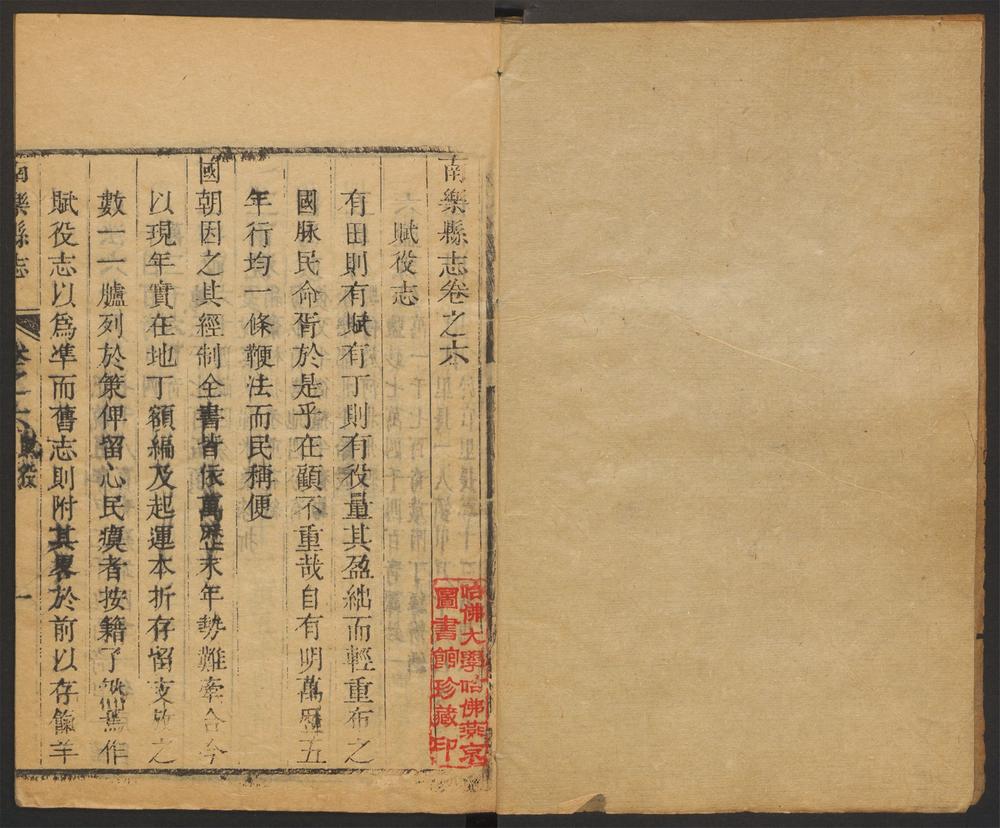 南樂縣志卷之六
賦役志
有田則有賦有丁則有役量其盈絀而輕重布之
國脉民命胥於是乎在顧不重哉自有明萬曆五
年行均一條鞭法而民稱便
國朝因之其經制全書皆依萬歷末年勢難牽合今
以現年實在地丁額編及起運本折存留支放之
數一一臚列於策俾留心民瘼者按籍了然焉作
賦役志以爲準而舊志則附其畧於前以存餼羊
南樂縣志
卷之六
賦役
一
哈佛大學哈佛燕京
圖書館珍藏印